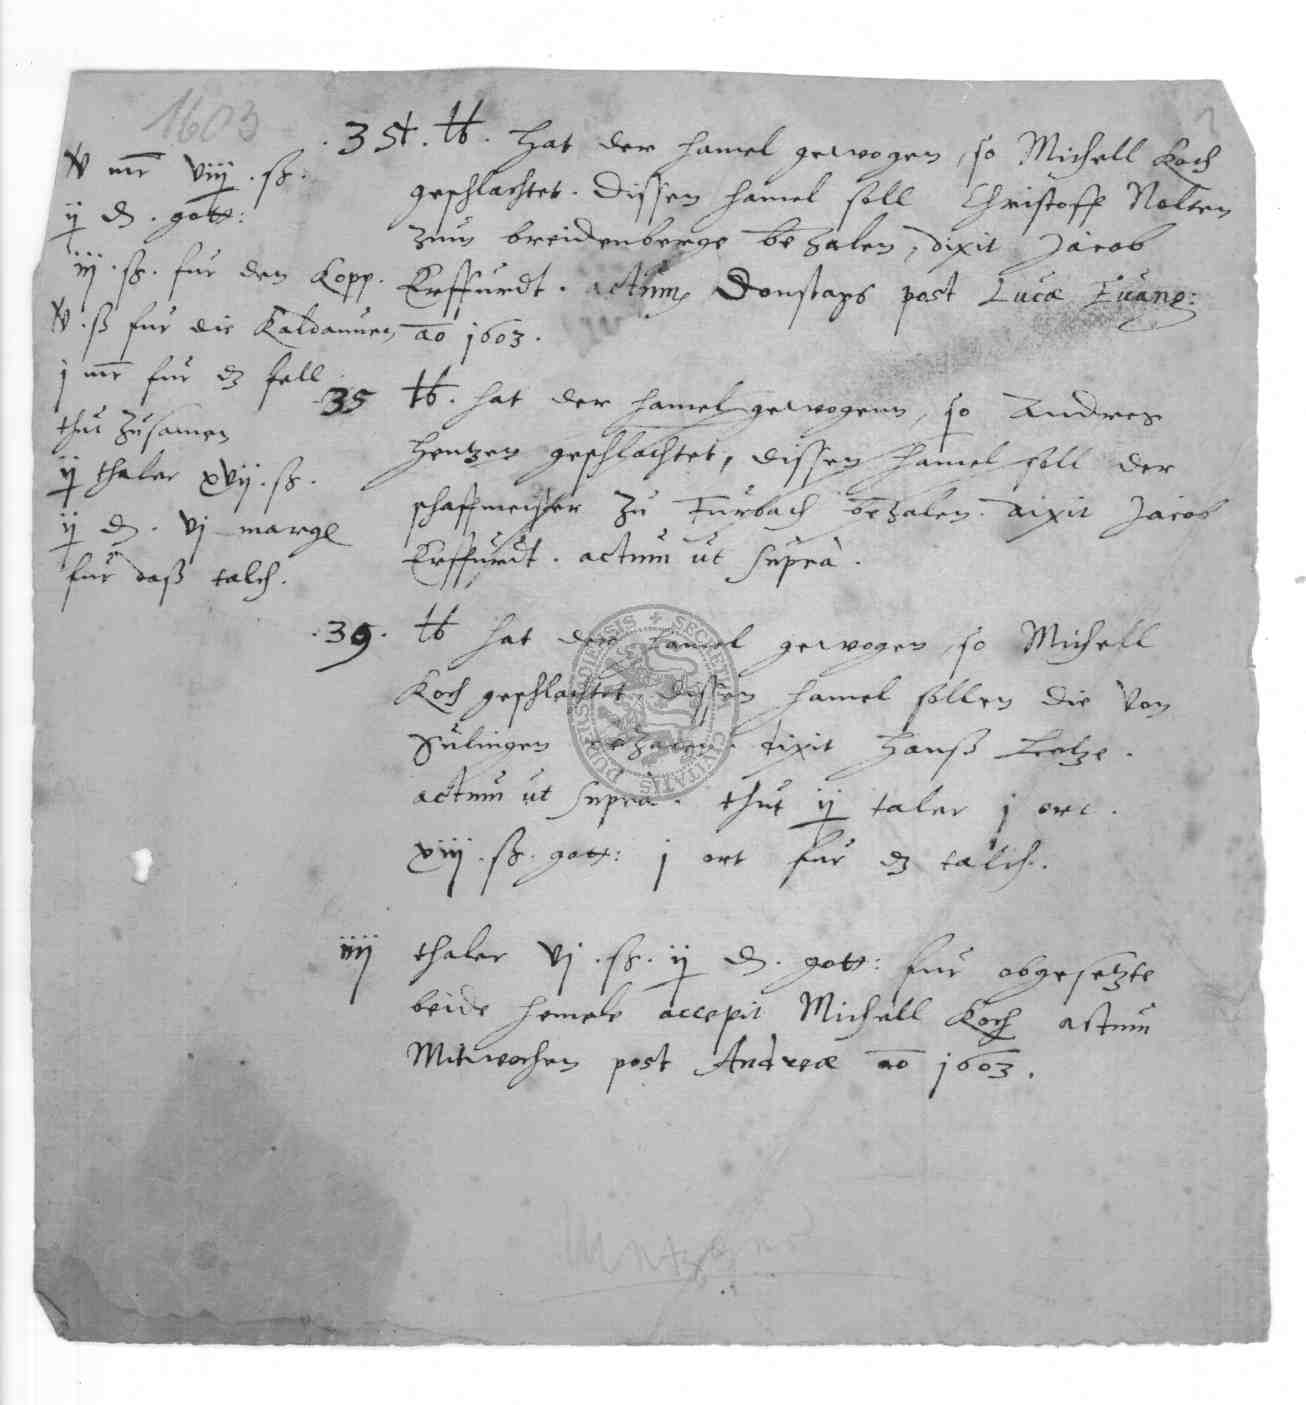 1603
v mr viij ß.
ij ₰. gott:
iij ß. fur den Kopp.
v ß fur die Kaldaunen
j mr fur dz fell
thut zusamen
ij thaler xvij ß.
ij ₰. vj margl
fur daß talch.
35½. ℔. Hat der hamel gewogen, so Michell Koch
geschlachtet. Dissen hamel soll Christoff Nolten
zum breidenberge bezalen, dixit Jacob
Erffurdt. actum Donstags post Lucæ Euang:
ao 1603.
35 ℔. hat der hamel gewogenn, so Andres
Hentzen geschlachtet, dissen hamel soll der
schaffmeister zu Furbach bezalen. dixit Jacob
Erffurdt. actum ut supra.
39. ℔ hat der hamel gewogen, so Michell
Koch geschlachtet. dissen hamel sollen die von
Sulingen bezalen. dixit Hanß
actum ut supra. thut ij taler j ort.
xiij ß. gott: j ort fur dz talch.
iiij thaler vj ß. ij ₰. gott: fur obgesetzte
beide hemele accepit Michell Koch actum
Mitwochen post Andreæ ao 1603.